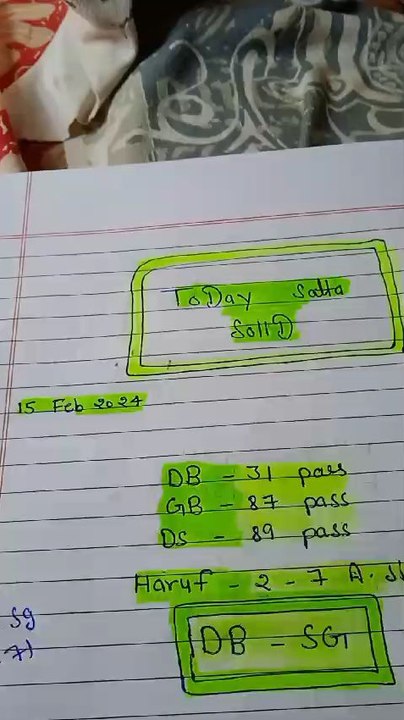 ToDay Satta
SollD
15 Feb 2024
DB - 31 pass
GB - 87 pass
DS - 89 pass
Haruf - 2 - 7 A.
sg
DB - SG
7)